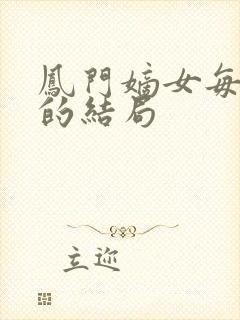 鳳門嫡女每
的結局
立迩